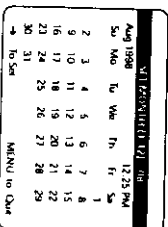 Aug 1998 12:25 PM
Su Mo Tu We Th Fr Sa
1
2 3 4 5 6 7 8
9 10 11 12 13 14 15
16 17 18 19 20 21 22
23 24 25 26 27 28 29
30 31
→ To Set MENU to Quit